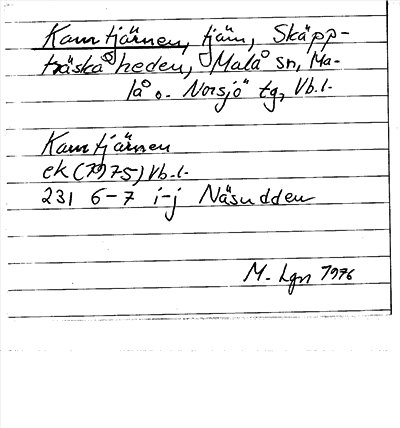 Kamtjärnen, tjärn, Skäpp-
träskåheden, Malå sn, Ma-
lå o. Norsjö tg, Vb.l.
Kamtjärnen
ek (1975) Vb.l.
231 6-7 i-j Näsudden
M. Lgn 1976